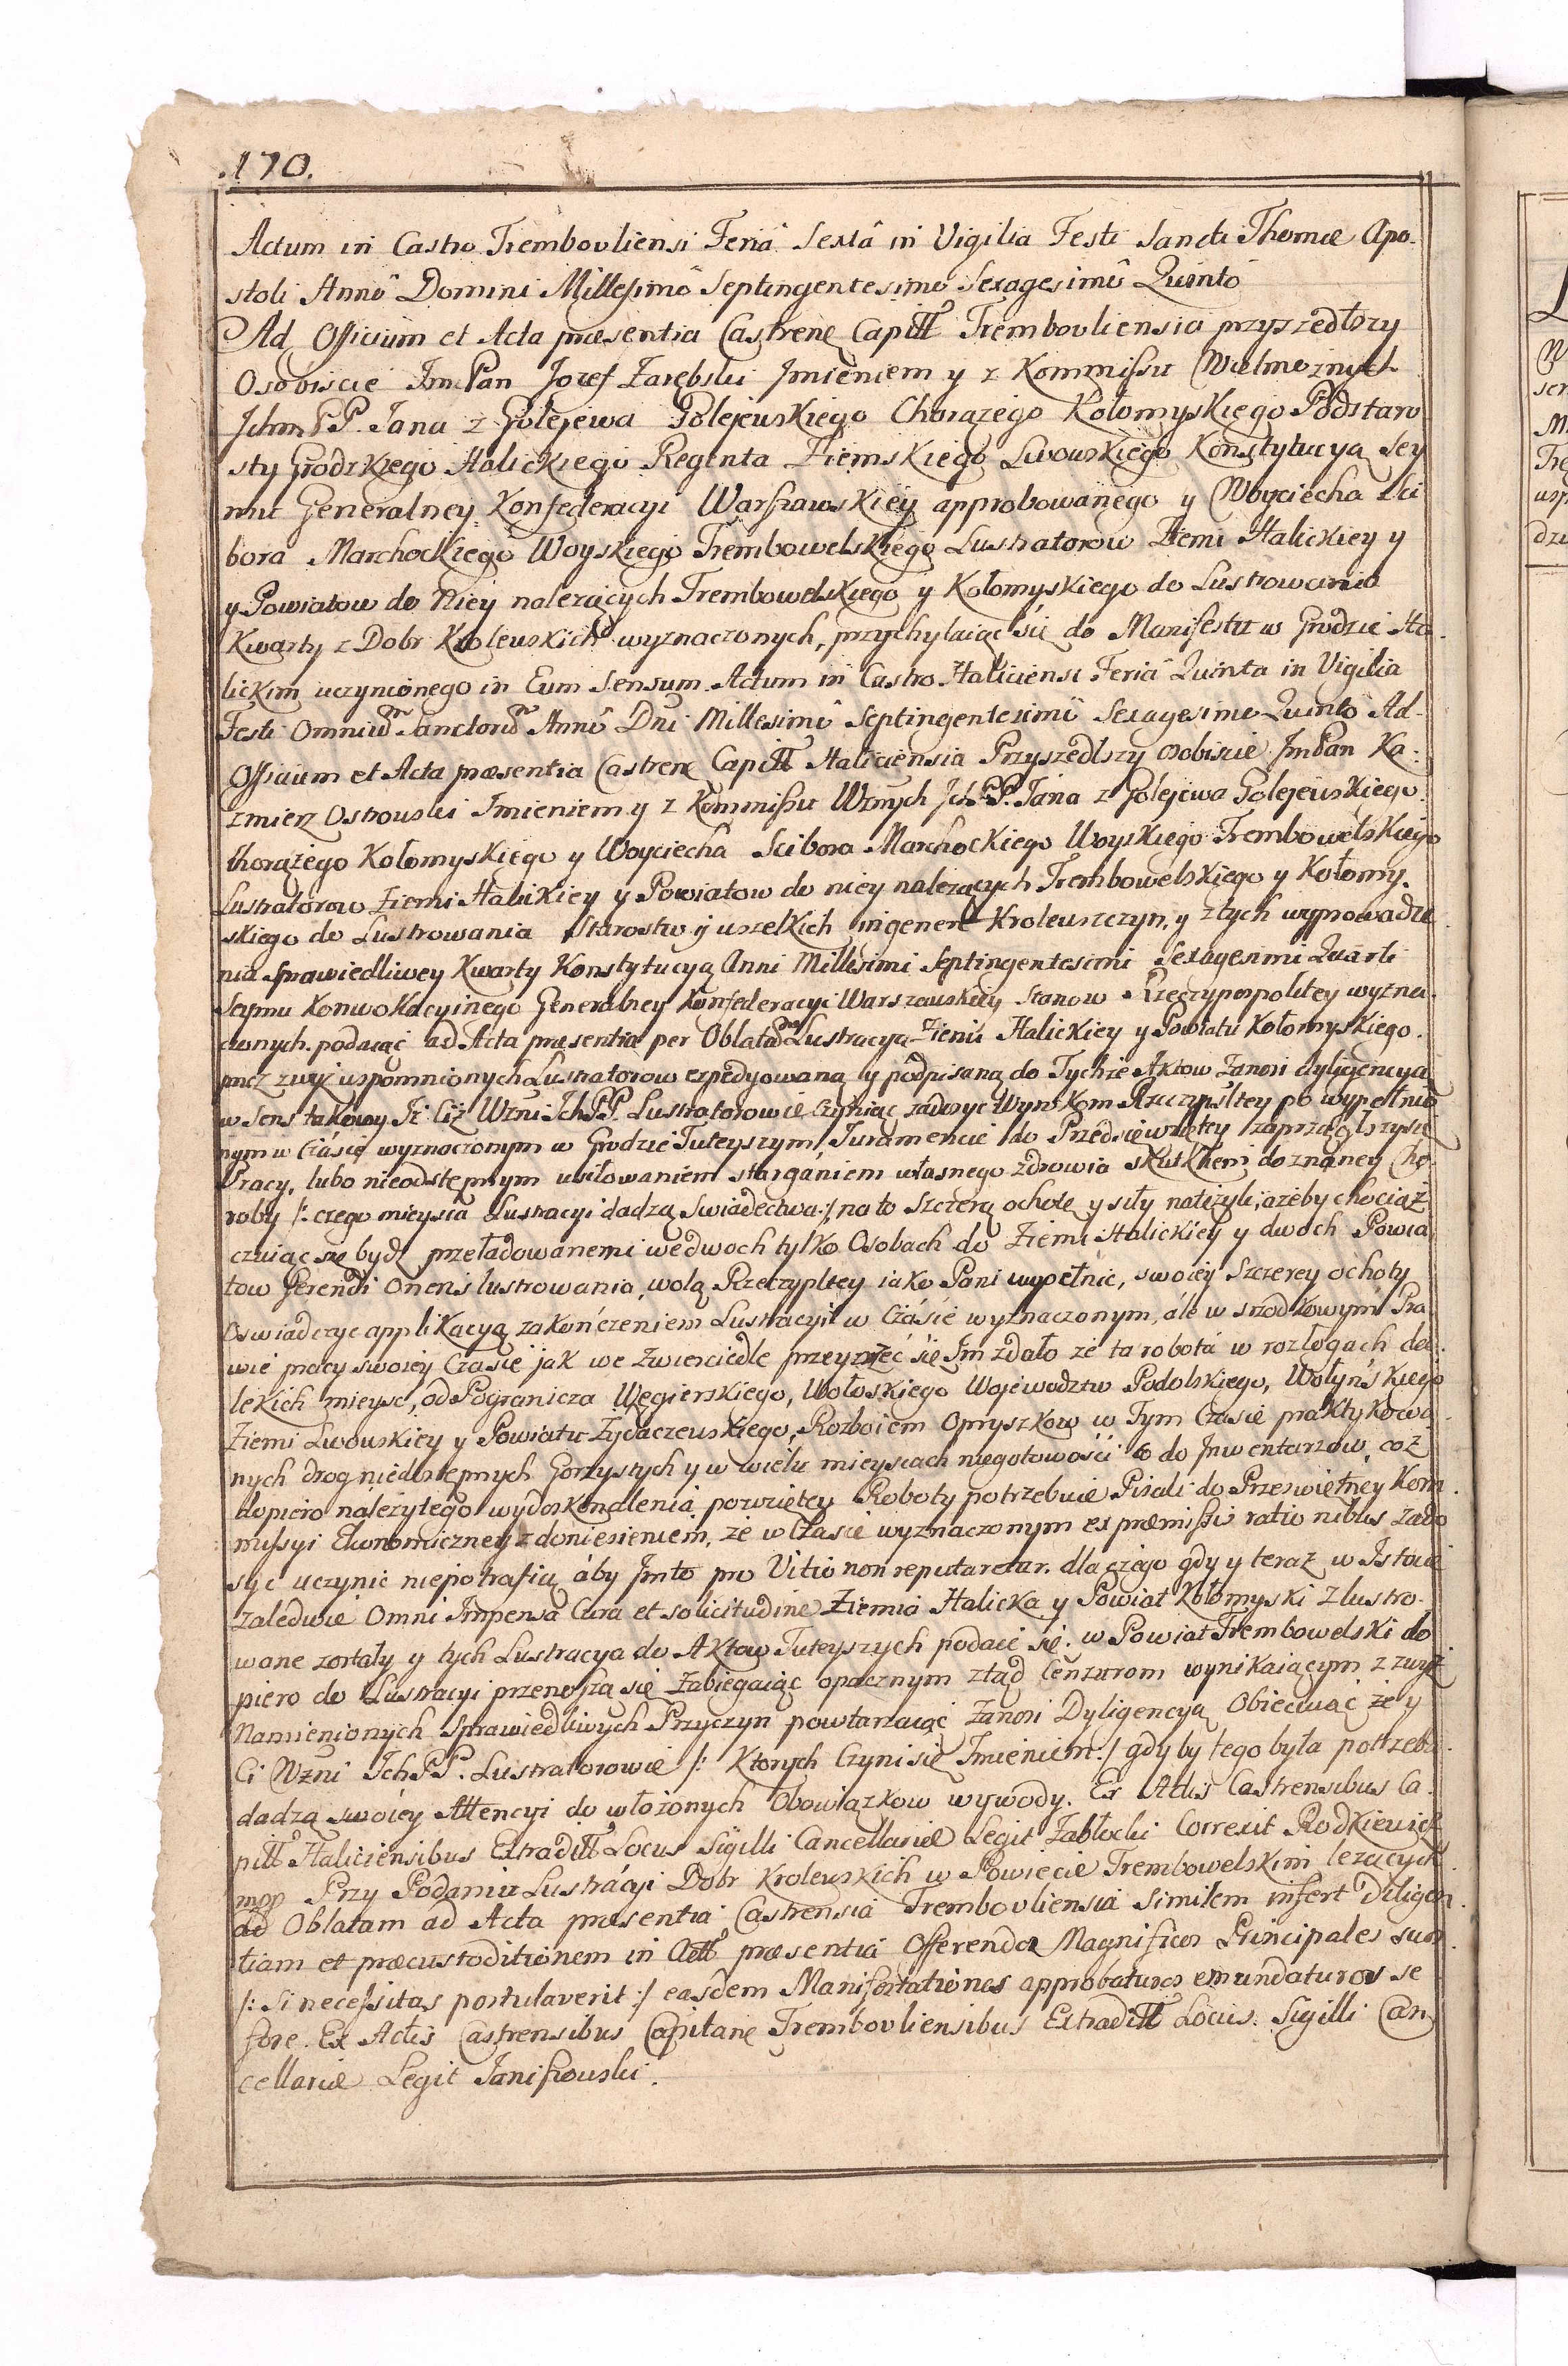 .170.
Actum in Castro Trembovliensi Feriâ Sextâ in Vigilia Festi Sancti Thomæ Apo-
stoli Annô Domini Millesimô Septingentesimô Sexagesimô Quintô
Ad Officium et Acta præsentia Castrenę Capittł Trembovliensia przyszedłszy
Osobiscie ImPan Jozef Zarębski Imieniem y z Kommissu Wielmoznych
Ichm PP. Jana z Golejewa Golejewskiego Chorązego Kołomyskiego Podstaro
sty Grodzkiego Halickiego Regenta Ziemskiego Lwowskiego Konstytucyą Sey
mu Generalney Konfederacyi Warszawskiey approbowanego y Woyciecha Sci
bora Marchockiego Woyskiego Trembowelskiego Lustratorow Ziemi Halickiey y
y Powiatow do Niey nalezących Trembowelskiego y Kołomyskiego do Lustrowania
Kwarty z Dobr Krolewskich wyznaczonych, przychylaiąc się do Manifestu w Grodzie Ha-
lickim uczynionego in Eum Sensum. Actum in Castro Haliciensi Feriâ Quinta in Vigilia
Festi Omniũ Sanctorũ Annô Dni Millesimô Septingentesimô Sexagesimo Quintô Ad-
Officium et Acta præsentia Castrenę Capittł Haliciensia Przyszedłszy osobiscie ImPan Ka-
zmierz Ostrowski Imieniem y z Kommissu Wznych Ich PP. Jana z Golejewa Golejewskiego
Chorązego Kołomyskiego y Woyciecha Scibora Marchockiego Woyskiego Trembowelskiego
Lustratorow Ziemi Halickiey y Powiatow do niey nalezących Trembowelskiego y Kołomy-
skiego do Lustrowania Starostw y wszelkich ingenere Krolewszczyn, y z tych wyprowadze
nia sprawiedliwey Kwarty Konstytucyą Anni Millesimi Septingentesimi Sexagesimi Quarti
Seymu Konwokacyinego Generalney Konfederacyi Warszawskiey Stanow Rzeczypospolitey wyzna-
czonych. podaiąc ad Acta præsentia per Oblatam Lustracyą Ziemi Halickiey y Powiatu Kołomyskiego.
przez zwyż wspomnionych Lustratorow expedyowaną y podpisaną do Tychże Aktow Zanosi dyligencyą
w Sens takowy. Iż Ciż Wzni Ich PP. Lustratorowie Czyniąc zadosyc Wyrokom Rzeczypsltey po wypełnio
nym w Czásie wyznaczonym w Grodzie Tuteyszym, Juramencie do Przedsięwziętey zaprzągłszysię
Pracy, lubo nieodstępnym usiłowaniem starganiem własnego zdrowia skutkiem doznaney Cho-
roby /: czego mieysca Lustracyi dadzą Swiadectwa :/ na to Szczerą ochotę y siły natężyli, ażeby chociaż
czuiąc się bydź przeładowanemi we dwoch tylko Osobach do Ziemi Halickiey y dwoch Powia
tow Gerendi Oneris lustrowania, wolą Rzeczypltey iako Pani wypełnic, swoiey Szczerey ochoty
Oswiadczyc applikacyą zakończeniem Lustracyi w Czásie wyznaczonym, ále w srzodkowym Pra-
wie pracy swoiey Czasie jak we Zwierciedle przeyrzeć się Im zdało że ta robotá w rozłogach da-
lekich mieysc, od Pogranicza Węgierskiego, Wołoskiego Wojewodztw Podolskiego, Wołyńskiego
Ziemi Lwowskiey y Powiatu Zydaczewskiego, Rozboiem Opryszkow w Tym Czasie praktykowa-
nych drog niedostępnych Gorzystych y w wielu mieyscach niegotowości co do Inwentarzow, coż
dopiero należytego wydoskonalenia powziętey Roboty potrzebuie Pisali do Przeswiętney Kom-
missyi Ekonomiczney z doniesieniem, że w Czasie wyznaczonym ex præmissis rationibus zado
syć uczynic niepotrafią áby Im to pro Vitio non reputaretur. dla czego gdy y teraz w Istocie
zaledwie Omni Impensa Cura et solicitudine Ziemia Halicka y Powiat Kołomyski Zlustro-
wane zostały y tych Lustracya do Aktow Tuteyszych podaie się. w Powiat Trembowelski do
piero do Lustracyi przenoszą się Zabiegaiąc opacznym ztąd Cenzurom wynikaiącym z zwyż
Namienionych Sprawiedliwych Przyczyn powtarzaiąc Zanosi Dyligencyą Obiecuiąc że y
Ci Wzni Ich PP. Lustratorowie /: Ktorych Czyni się Imieniem :/ gdy by tego była potrzeba.
dadzą swoiey Attencyi do włożonych Obowiązkow wywody. Ex Actis Castrensibus Ca-
pittł Haliciensibus Extradittł Locus Sigilli Cancellariæ Legit Zabłocki Correxit Rodkiewicz
mpp Przy Podaniu Lustrácyi Dobr Krolewskich w Powiecie Trembowelskim lezących
ad Oblatam ad Acta præsentia Castrensia Trembovliensia Similem infert Diligen-
tiam et præcustoditionem in Actł præsentia Offerendo Magnificos Principales suos
/: Si necessitas postulaverit :/ easdem Manifestationes approbaturos emundaturos se
fore. Ex Actis Castrensibus Capitanę Trembovliensibus Extradittł Locus Sigilli Can-
cellariæ Legit Janiszowski.